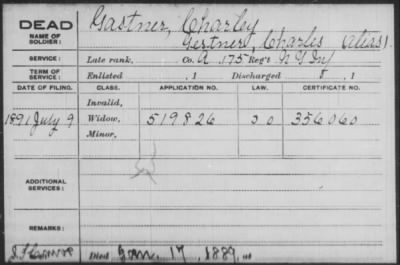 DEAD
Gastner, Charley
NAME OF SOLDIER:
Gertner, Charles (Alias).
SERVICE:
Late rank, Co. A, 175 Reg't N Y Inf
TERM OF SERVICE:
Enlisted , 1 Discharged , 1
DATE OF FILING. CLASS. APPLICATION NO. LAW. CERTIFICATE NO.
Invalid,
1891 July 9 Widow, 519826 356060
Minor,
ADDITIONAL SERVICES:
REMARKS:
Died Jan. 17, 1889,